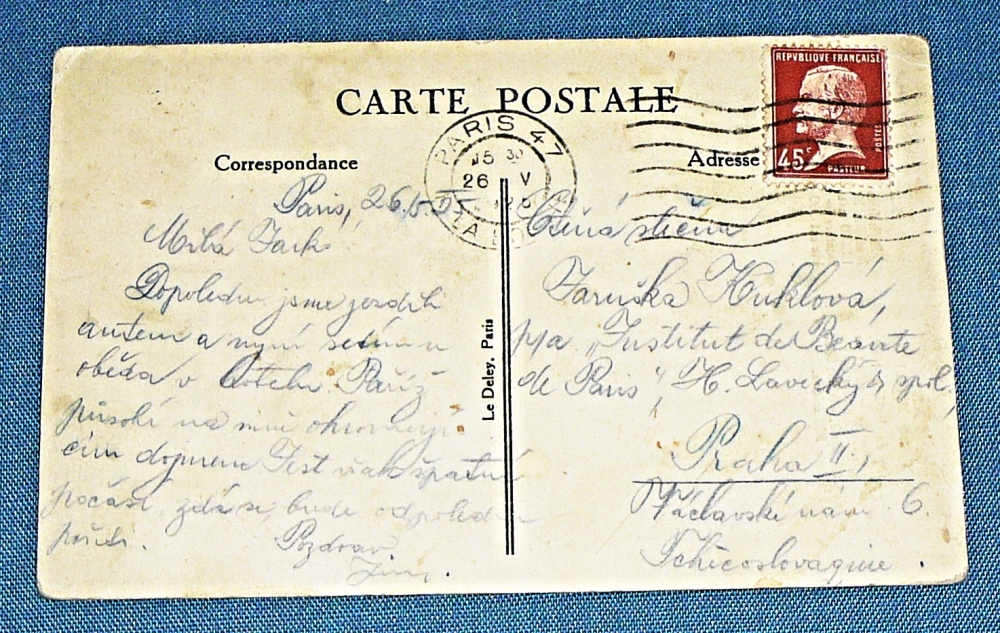 CARTE POSTALE
REPVBLIQUE FRANÇAISE
45c
POSTES
PASTEUR
PARIS 47
15 30
26 V
LA
Correspondance
Adresse
Paris, 26.5.25
Milá
Dopoledne jsme jezdili
autem a nyní sedíme u
oběda v hotelu. Paříž
působí na mne ohromují
cím dojmem. Jest však špatné
počasí, zdá se, bude odpoledne
Pozdrav
Le Deley, Paris
slečna
Jaruška Kuklová,
p/a „Institut de Beauté
de Paris", H. Lavický & spol.,
Praha II,
Václavské nám 6.
Tchécoslovaquie.